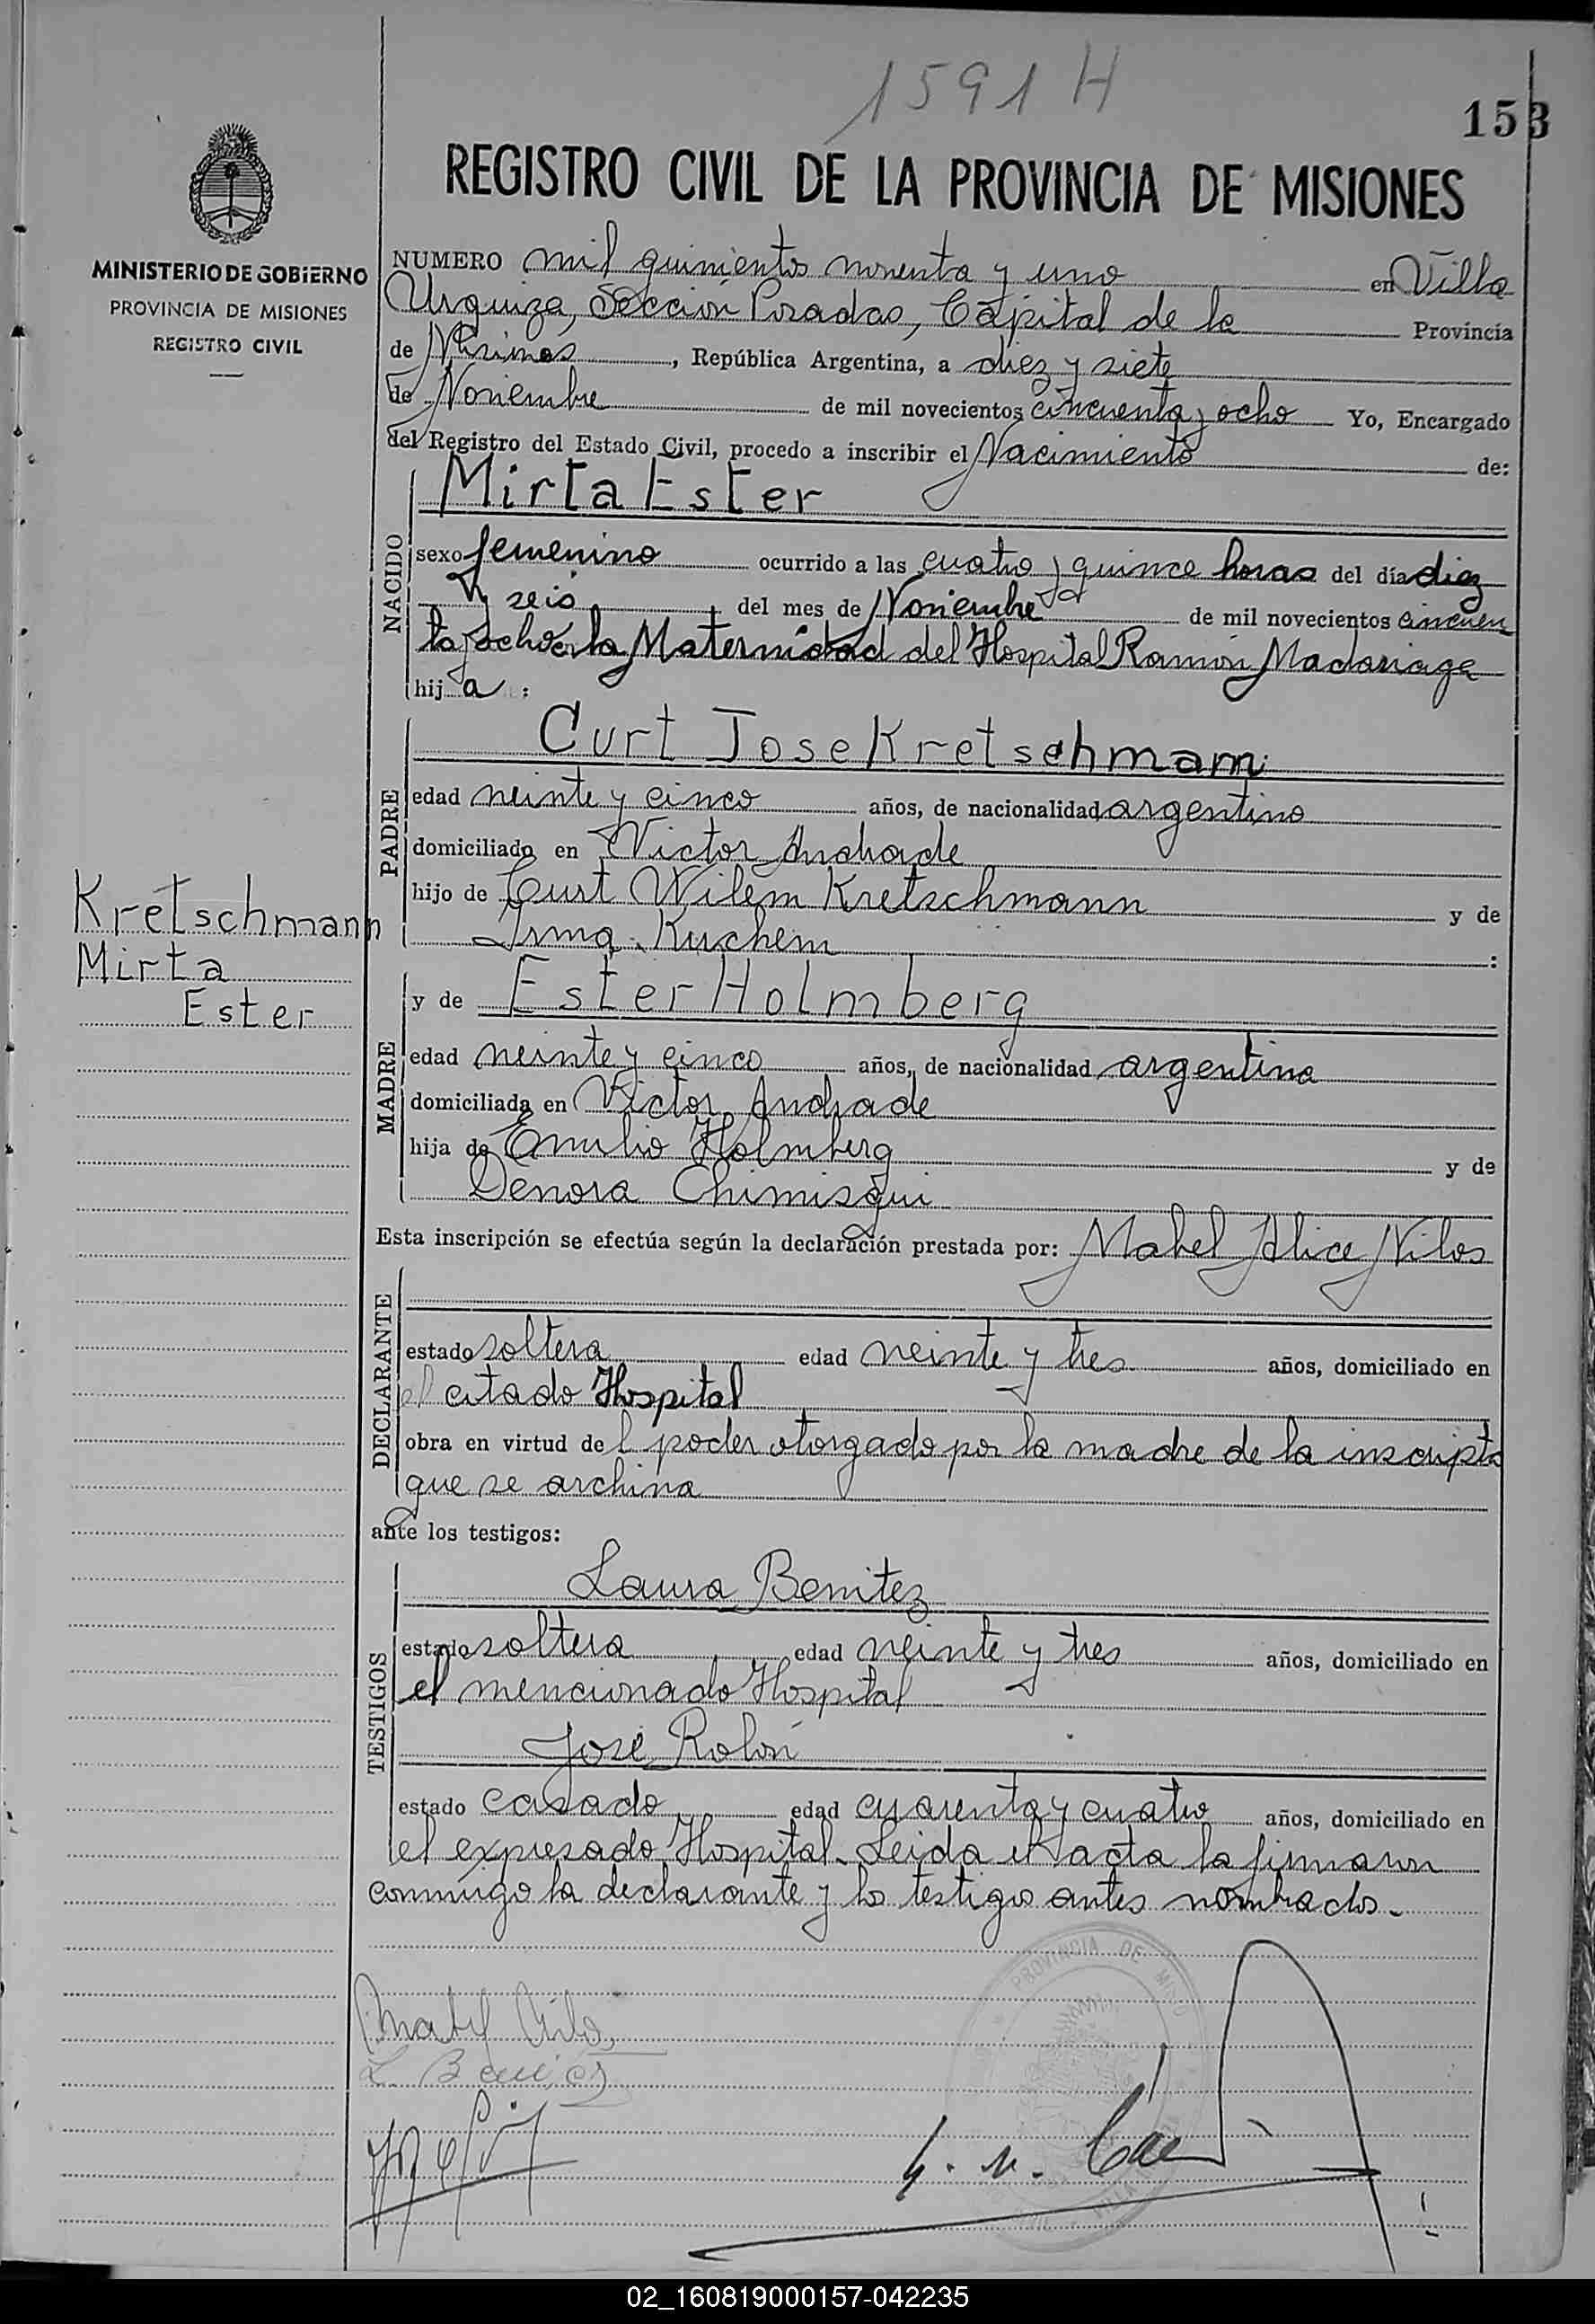 1591 H
153
REGISTRO CIVIL DE LA PROVINCIA DE MISIONES
MINISTERIO DE GOBIERNO
PROVINCIA DE MISIONES
REGISTRO CIVIL
NUMERO mil quinientos noventa y uno en Villa
Urquiza, Sección Posadas, Capital de la Provincia
de Misiones, República Argentina, a diez y siete
de Noviembre de mil novecientos cincuenta y ocho Yo, Encargado
del Registro del Estado Civil, procedo a inscribir el Nacimiento de:
NACIDO
Mirta Ester
sexo femenino ocurrido a las cuatro y quince horas del día diez
y seis del mes de Noviembre de mil novecientos cincuen
ta y ocho en la Maternidad del Hospital Ramón Madariaga
hij a :
PADRE
Curt Jose Kretschmam
edad veinte y cinco años, de nacionalidad argentino
domiciliado en Victor Andrade
hijo de Curt Wilem Kretschmann y de
Irma Kuchem :
Kretschmann
Mirta
Ester
MADRE
y de Ester Holmberg
edad veinte y cinco años, de nacionalidad argentina
domiciliada en Victor Andrade
hija de Emilio Holmberg y de
Denora Chimisqui
Esta inscripción se efectúa según la declaración prestada por: Mabel Alice Vilos
DECLARANTE
estado soltera edad veinte y tres años, domiciliado en
el citado Hospital
obra en virtud de l poder otorgado por la madre de la inscripta
que se archiva
ante los testigos:
TESTIGOS
Laura Benitez
estado soltera edad veinte y tres años, domiciliado en
el mencionado Hospital
José Rolón
estado casado edad cuarenta y cuatro años, domiciliado en
el expresado Hospital. Leida el acta la firmaron
conmigo la declarante y los testigos antes nombrados.
PROVINCIA DE
Mabel Vilos
L. Benitez
02_160819000157-042235